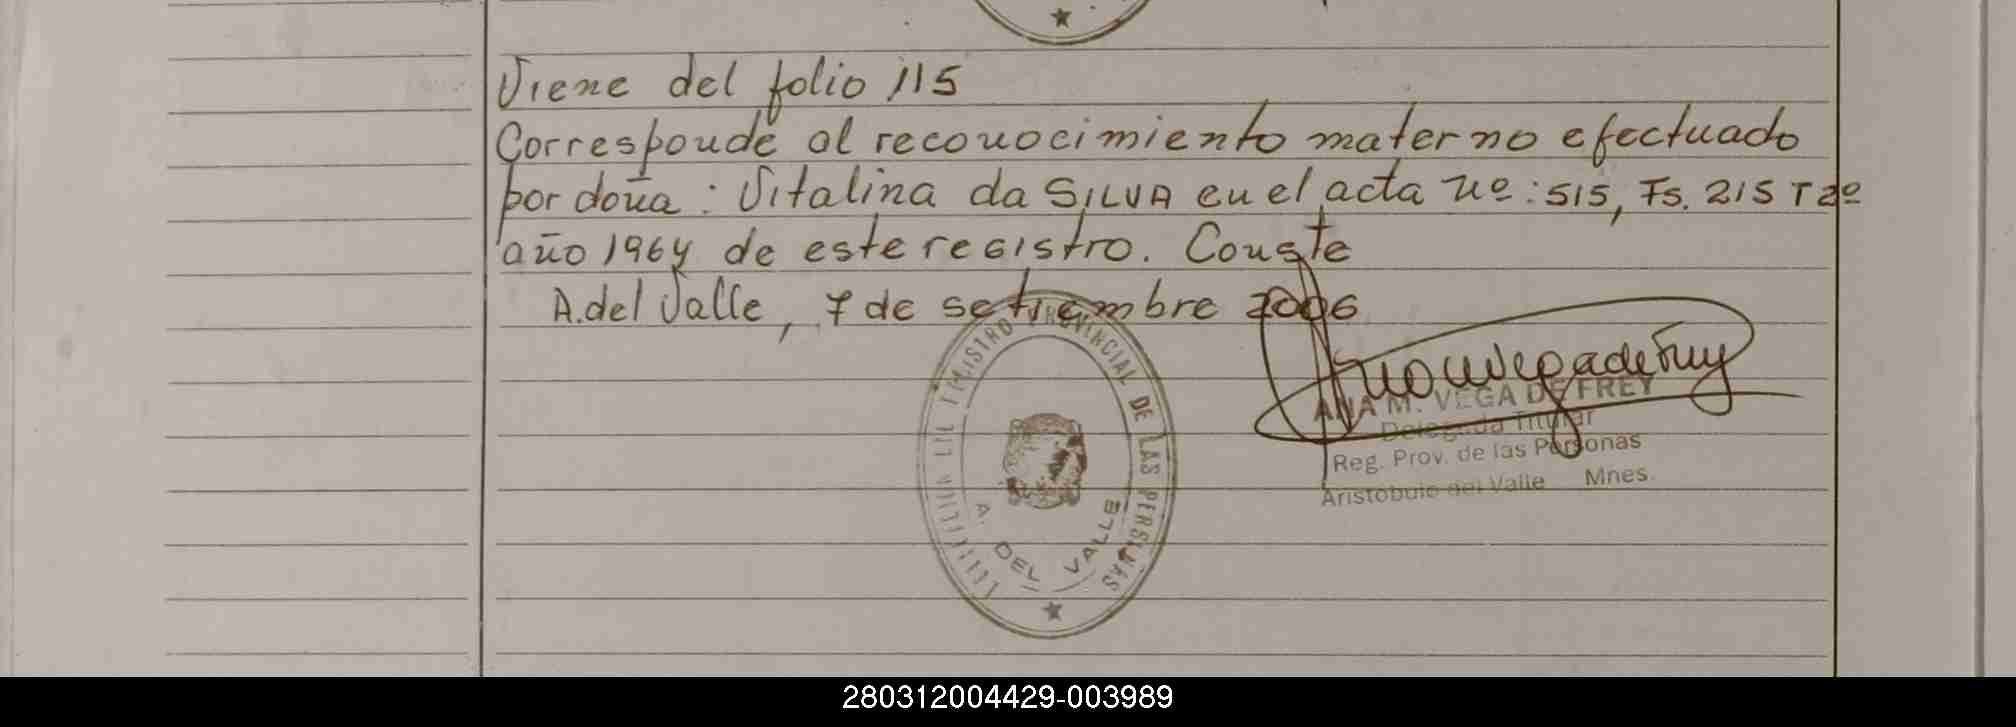 Viene del folio 115
Corresponde al reconocimiento materno efectuado
por doña: Vitalina da SILVA en el acta nº: 515, Fs. 215 T 2º
año 1964 de este registro. Conste
A. del Valle, 7 de setiembre 2006
PROVINCIAL DE LAS PERSONAS
A. DEL VALLE
ANA M. VEGA DE FREY
Delegada Titular
Reg. Prov. de las Personas
Aristóbulo del Valle Mnes.
280312004429-003989